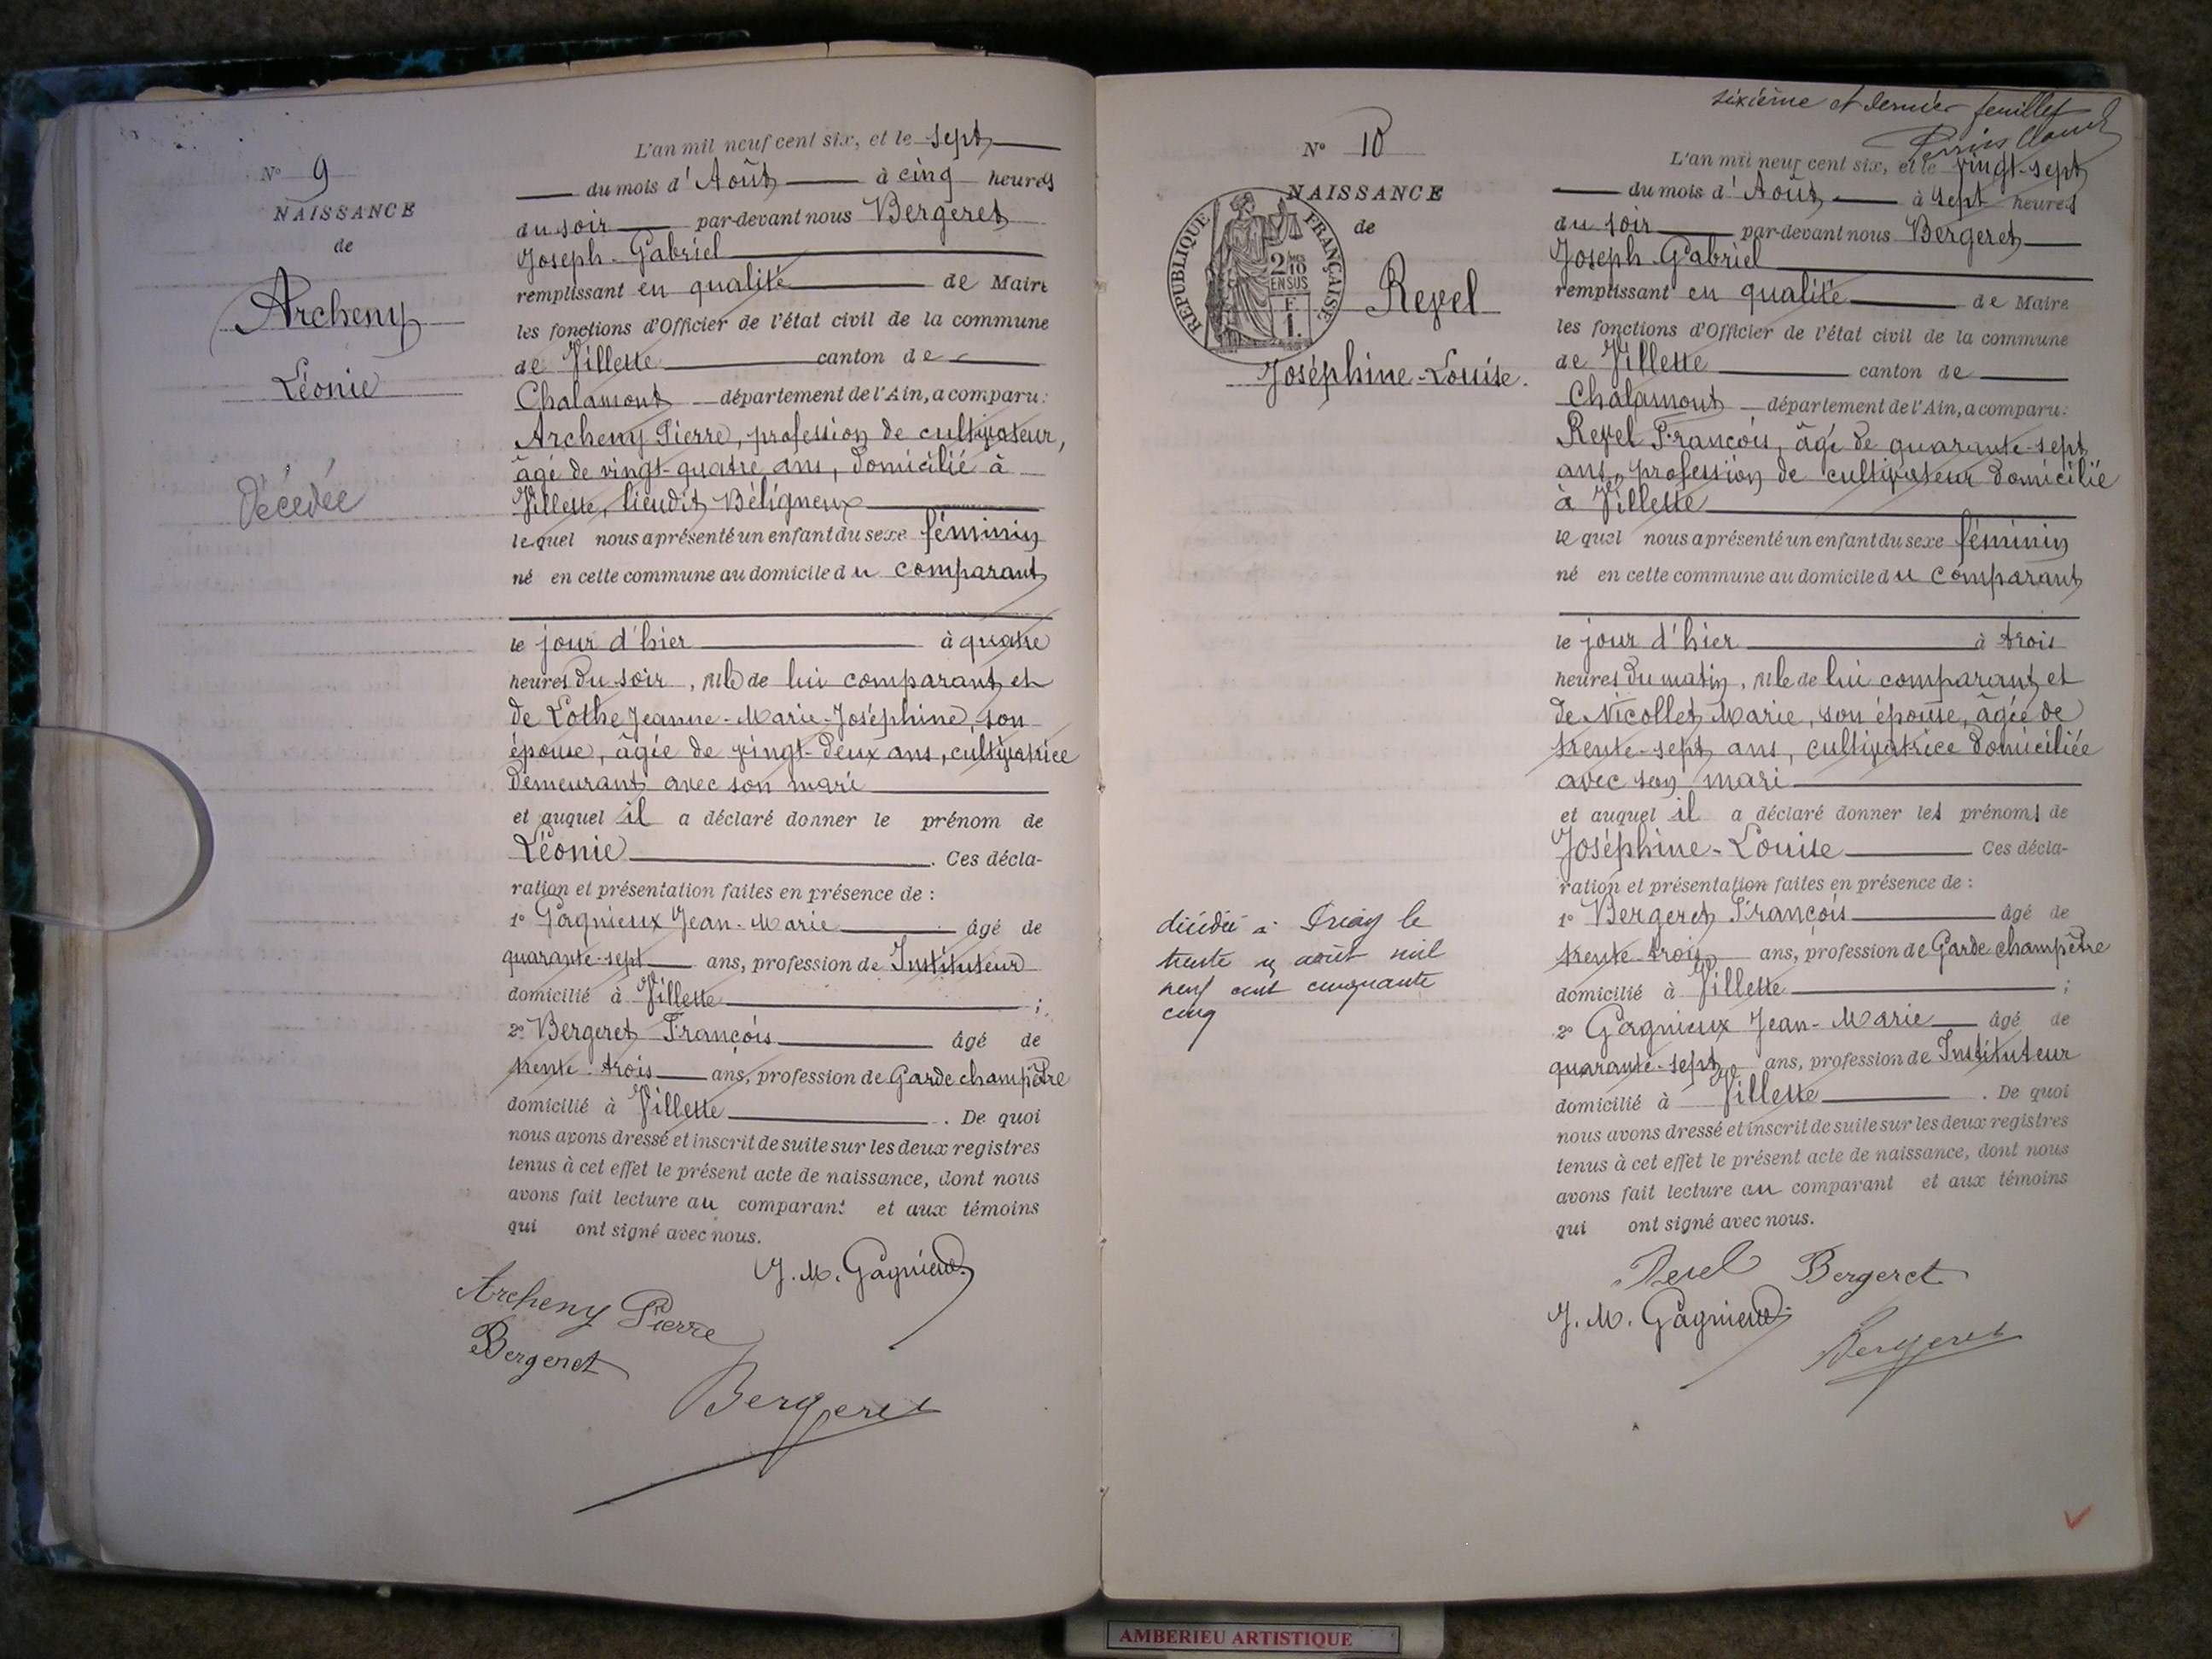 N° 9
NAISSANCE
de
Archeny
Léonie
Décédée
L'an mil neuf cent six, et le sept
du mois d'Août à cinq heures
du soir par-devant nous Bergeret
Joseph-Gabriel
remplissant en qualité de Maire
les fonctions d'Officier de l'état civil de la commune
de Villette canton de
Chalamont département de l'Ain, a comparu:
Archeny Pierre, profession de cultivateur,
âgé de vingt-quatre ans, domicilié à
Villette, lieudit Béligneux
lequel nous a présenté un enfant du sexe féminin
né en cette commune au domicile du comparant
le jour d'hier à quatre
heures du soir, fille de lui comparant et
de Lothe Jeanne-Marie-Joséphine, son
épouse, âgée de vingt-deux ans, cultivatrice
demeurant avec son mari
et auquel il a déclaré donner le prénom de
Léonie. Ces décla-
ration et présentation faites en présence de :
1° Gagnieux Jean-Marie âgé de
quarante-sept ans, profession de Instituteur
domicilié à Villette ;
2° Bergeret François âgé de
trente-trois ans, profession de Garde champêtre
domicilié à Villette. De quoi
nous avons dressé et inscrit de suite sur les deux registres
tenus à cet effet le présent acte de naissance, dont nous
avons fait lecture au comparant et aux témoins
qui ont signé avec nous.
J. M. Gagnieux
Archeny Pierre
Bergeret
Bergeret
sixième et dernier feuillet
N° 10
NAISSANCE
de
REPUBLIQUE FRANÇAISE
2/10
EN SUS
F.
1.
Revel
Joséphine-Louise.
décédée à le
trente un août mil
neuf cent cinquante
cinq
L'an mil neuf cent six, et le vingt-sept
du mois d'Août à sept heures
du soir par-devant nous Bergeret
Joseph-Gabriel
remplissant en qualité de Maire
les fonctions d'Officier de l'état civil de la commune
de Villette canton de
Chalamont département de l'Ain, a comparu:
Revel François, âgé de quarante-sept
ans, profession de cultivateur domicilié
à Villette
lequel nous a présenté un enfant du sexe féminin
né en cette commune au domicile du comparant
le jour d'hier à trois
heures du matin, fille de lui comparant et
de Nicollet Marie, son épouse, âgée de
trente-sept ans, cultivatrice domiciliée
avec son mari
et auquel il a déclaré donner les prénoms de
Joséphine-Louise Ces décla-
ration et présentation faites en présence de :
1° Bergeret François âgé de
trente trois ans, profession de Garde champêtre
domicilié à Villette ;
2° Gagnieux Jean-Marie âgé de
quarante-sept ans, profession de Instituteur
domicilié à Villette. De quoi
nous avons dressé et inscrit de suite sur les deux registres
tenus à cet effet le présent acte de naissance, dont nous
avons fait lecture au comparant et aux témoins
qui ont signé avec nous.
Revel Bergeret
J. M. Gagnieux
Bergeret
AMBERIEU ARTISTIQUE